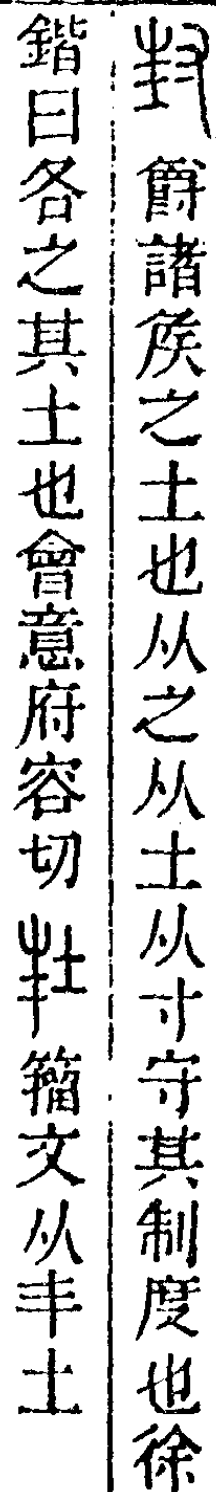 封 爵諸矦之土也从之从土从寸守其制度也徐
鍇曰各之其土也會意府容切 𡉚 籒文从丰土